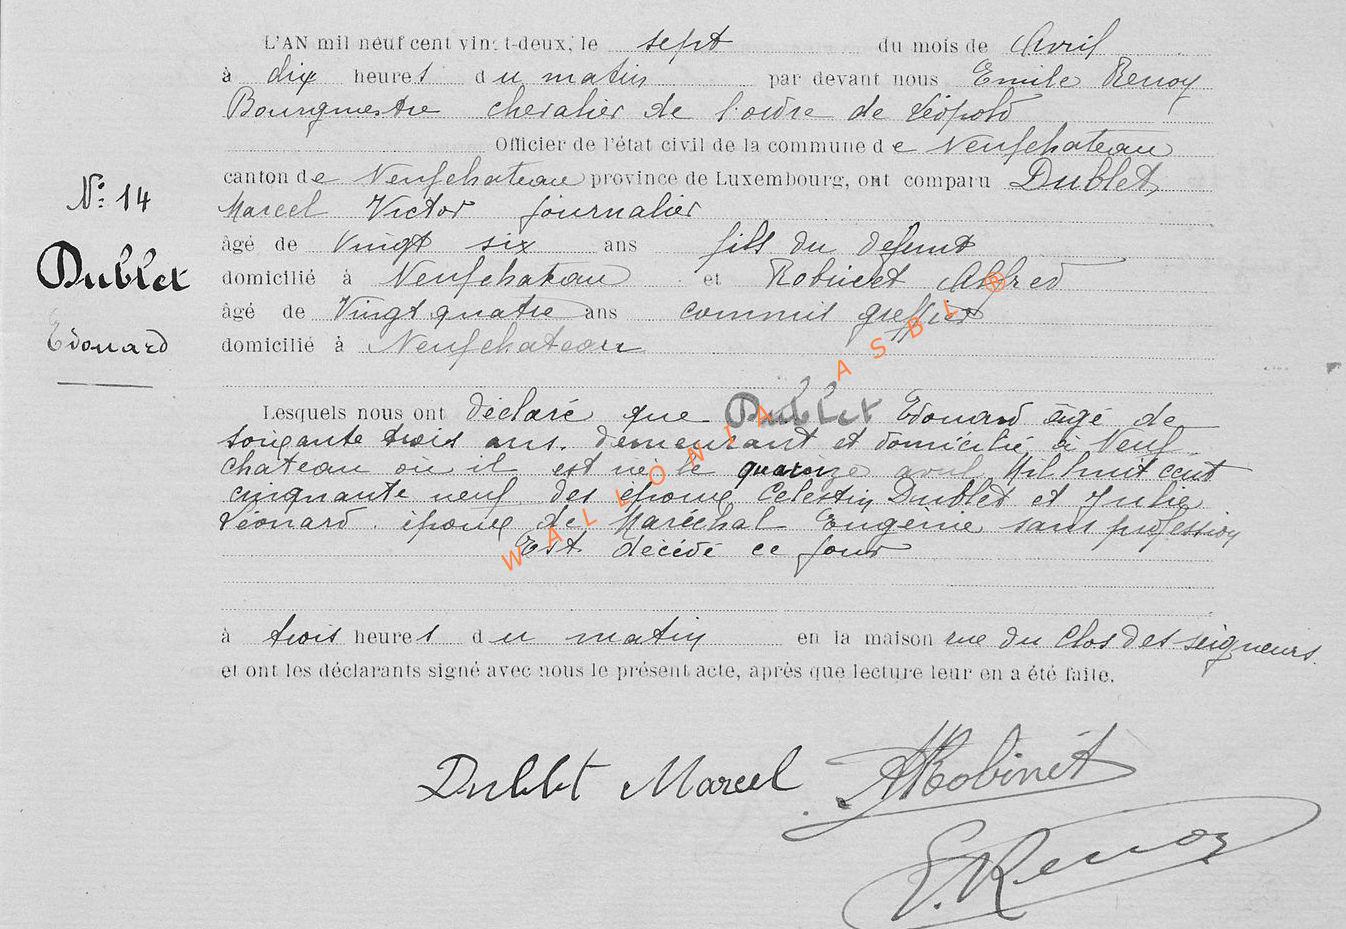 L'AN mil neuf cent vingt-deux, le sept du mois de Avril
à dix heures du matin par devant nous Emile Renoy
Bourgmestre chevalier de l'ordre de Léopold
Officier de l'état civil de la commune de Neufchateau
N° 14
canton de Neufchateau province de Luxembourg, ont comparu Dublet
Marcel Victor journalier
âgé de Vingt six ans fils du defunt
Dublet
domicilié à Neufchateau et Robinet Alfred
âgé de Vingt quatre ans commis greffier
Edouard
domicilié à Neufchateau
Lesquels nous ont déclaré que Dublet Edouard âgé de
soixante trois ans. demeurant et domicilié à Neuf
chateau où il est né le quatorze avril Mil huit cent
cinquante neuf des époux Celestin Dublet et Julie
Léonard. époux de Maréchal Eugénie sans profession
Est décédé ce jour
à trois heures du matin en la maison rue du Clos des seigneurs.
et ont les déclarants signé avec nous le présent acte, après que lecture leur en a été faite.
Dublet Marcel ARobinet
E. Renoy
WALLONIA ASBL ®